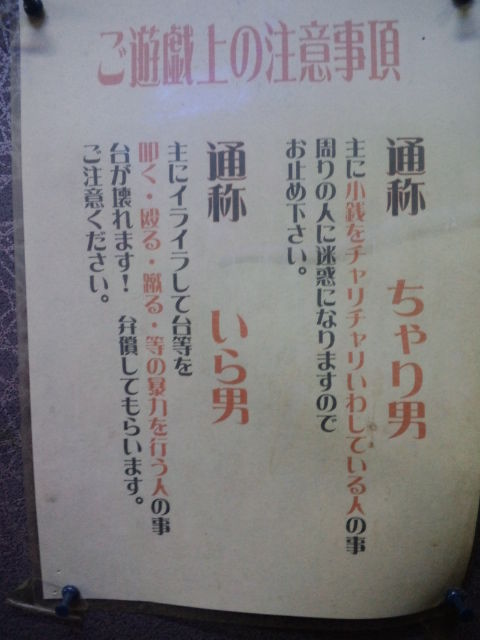 ご遊戯上の注意事項
通称 ちゃり男
主に小銭をチャリチャリいわしている人の事
周りの人に迷惑になりますので
お止め下さい。
通称 いら男
主にイライラして台等を
叩く・殴る・蹴る・等の暴力を行う人の事
台が壊れます! 弁償してもらいます。
ご注意ください。